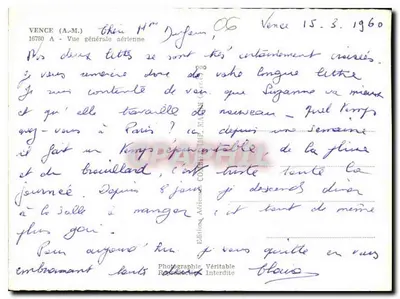 VENCE (A.-M.)
16780 A - Vue générale aérienne
06
Vence 15.3.1960
Cher
Nos deux lettres se sont certainement croisées.
Je vous remercie donc de votre longue lettre
Je suis contente de voir que Suzanne va mieux
et qu'elle travaille de nouveau - Quel temps
avez-vous à Paris ? ici depuis une semaine
il fait un temps épouvantable de la pluie
et du brouillard, c'est triste toute la
journée. Depuis je descends
à la salle à manger, c'est tout de même
plus gai.
Pour aujourd'hui je vous quitte en vous
embrassant tous
Photographie Véritable
Interdite
CPAPHIL